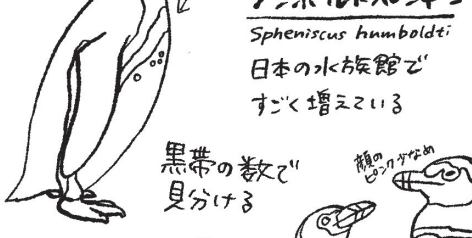 Spheniscus humboldti
日本の水族館で
すごく増えている
黒帯の数で
見分ける
顔の
ピンク少なめ